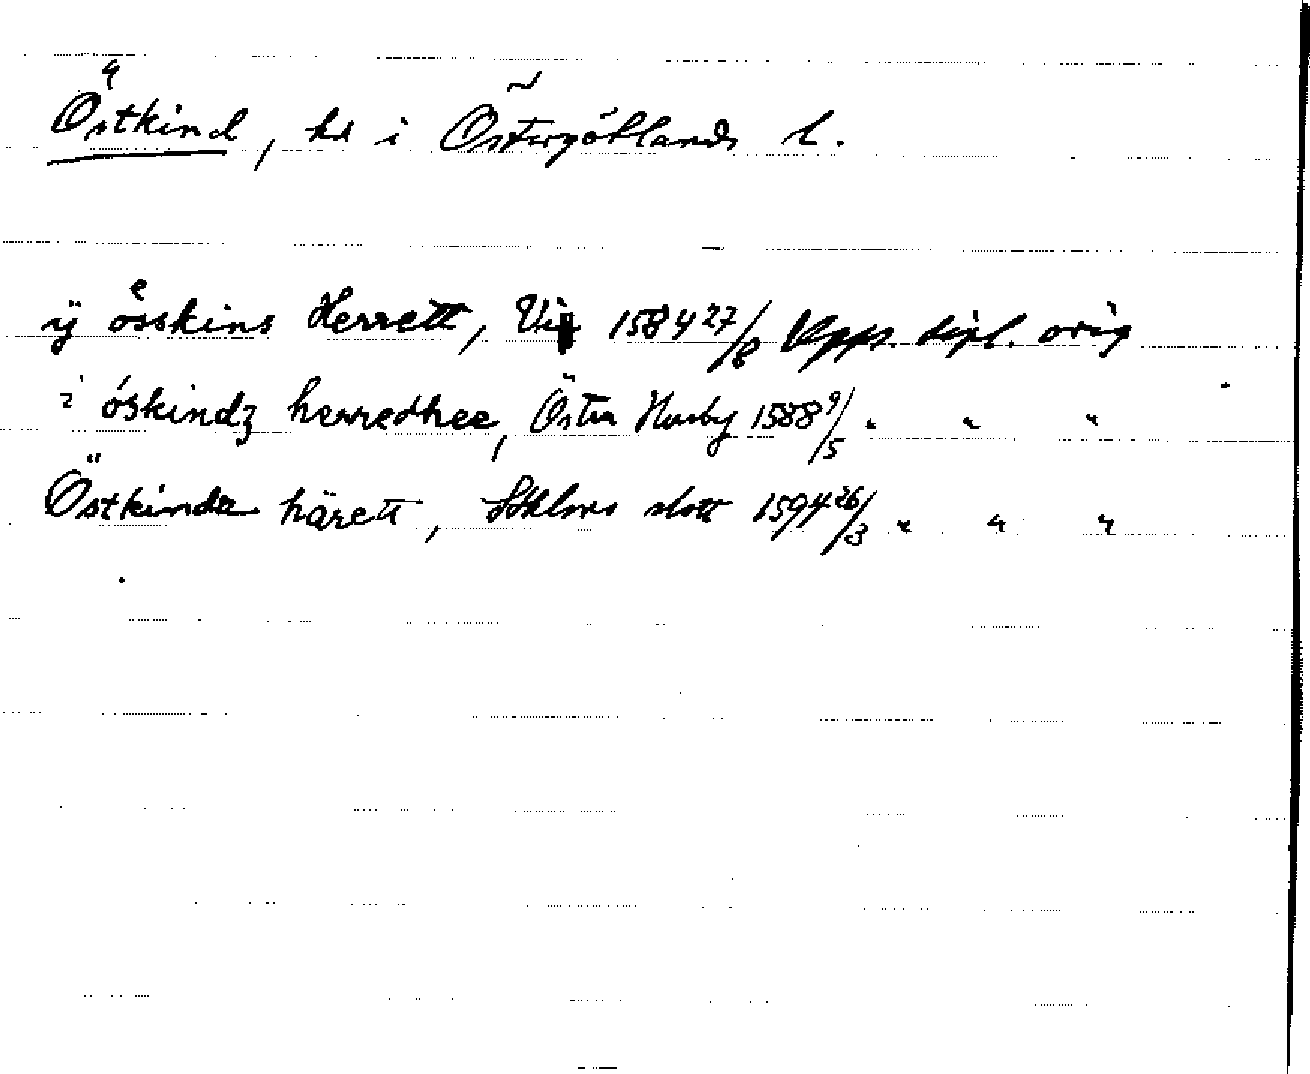 Östkind, hd i Östergötlands l.
ÿ oͤsskins Herrett, Vi 1584 27/8 Upps. dipl. orig
i óskindz herredhee, Östra Husby 1588 9/5 " " "
Östkinda härett, slott 1594 26/3 " " "